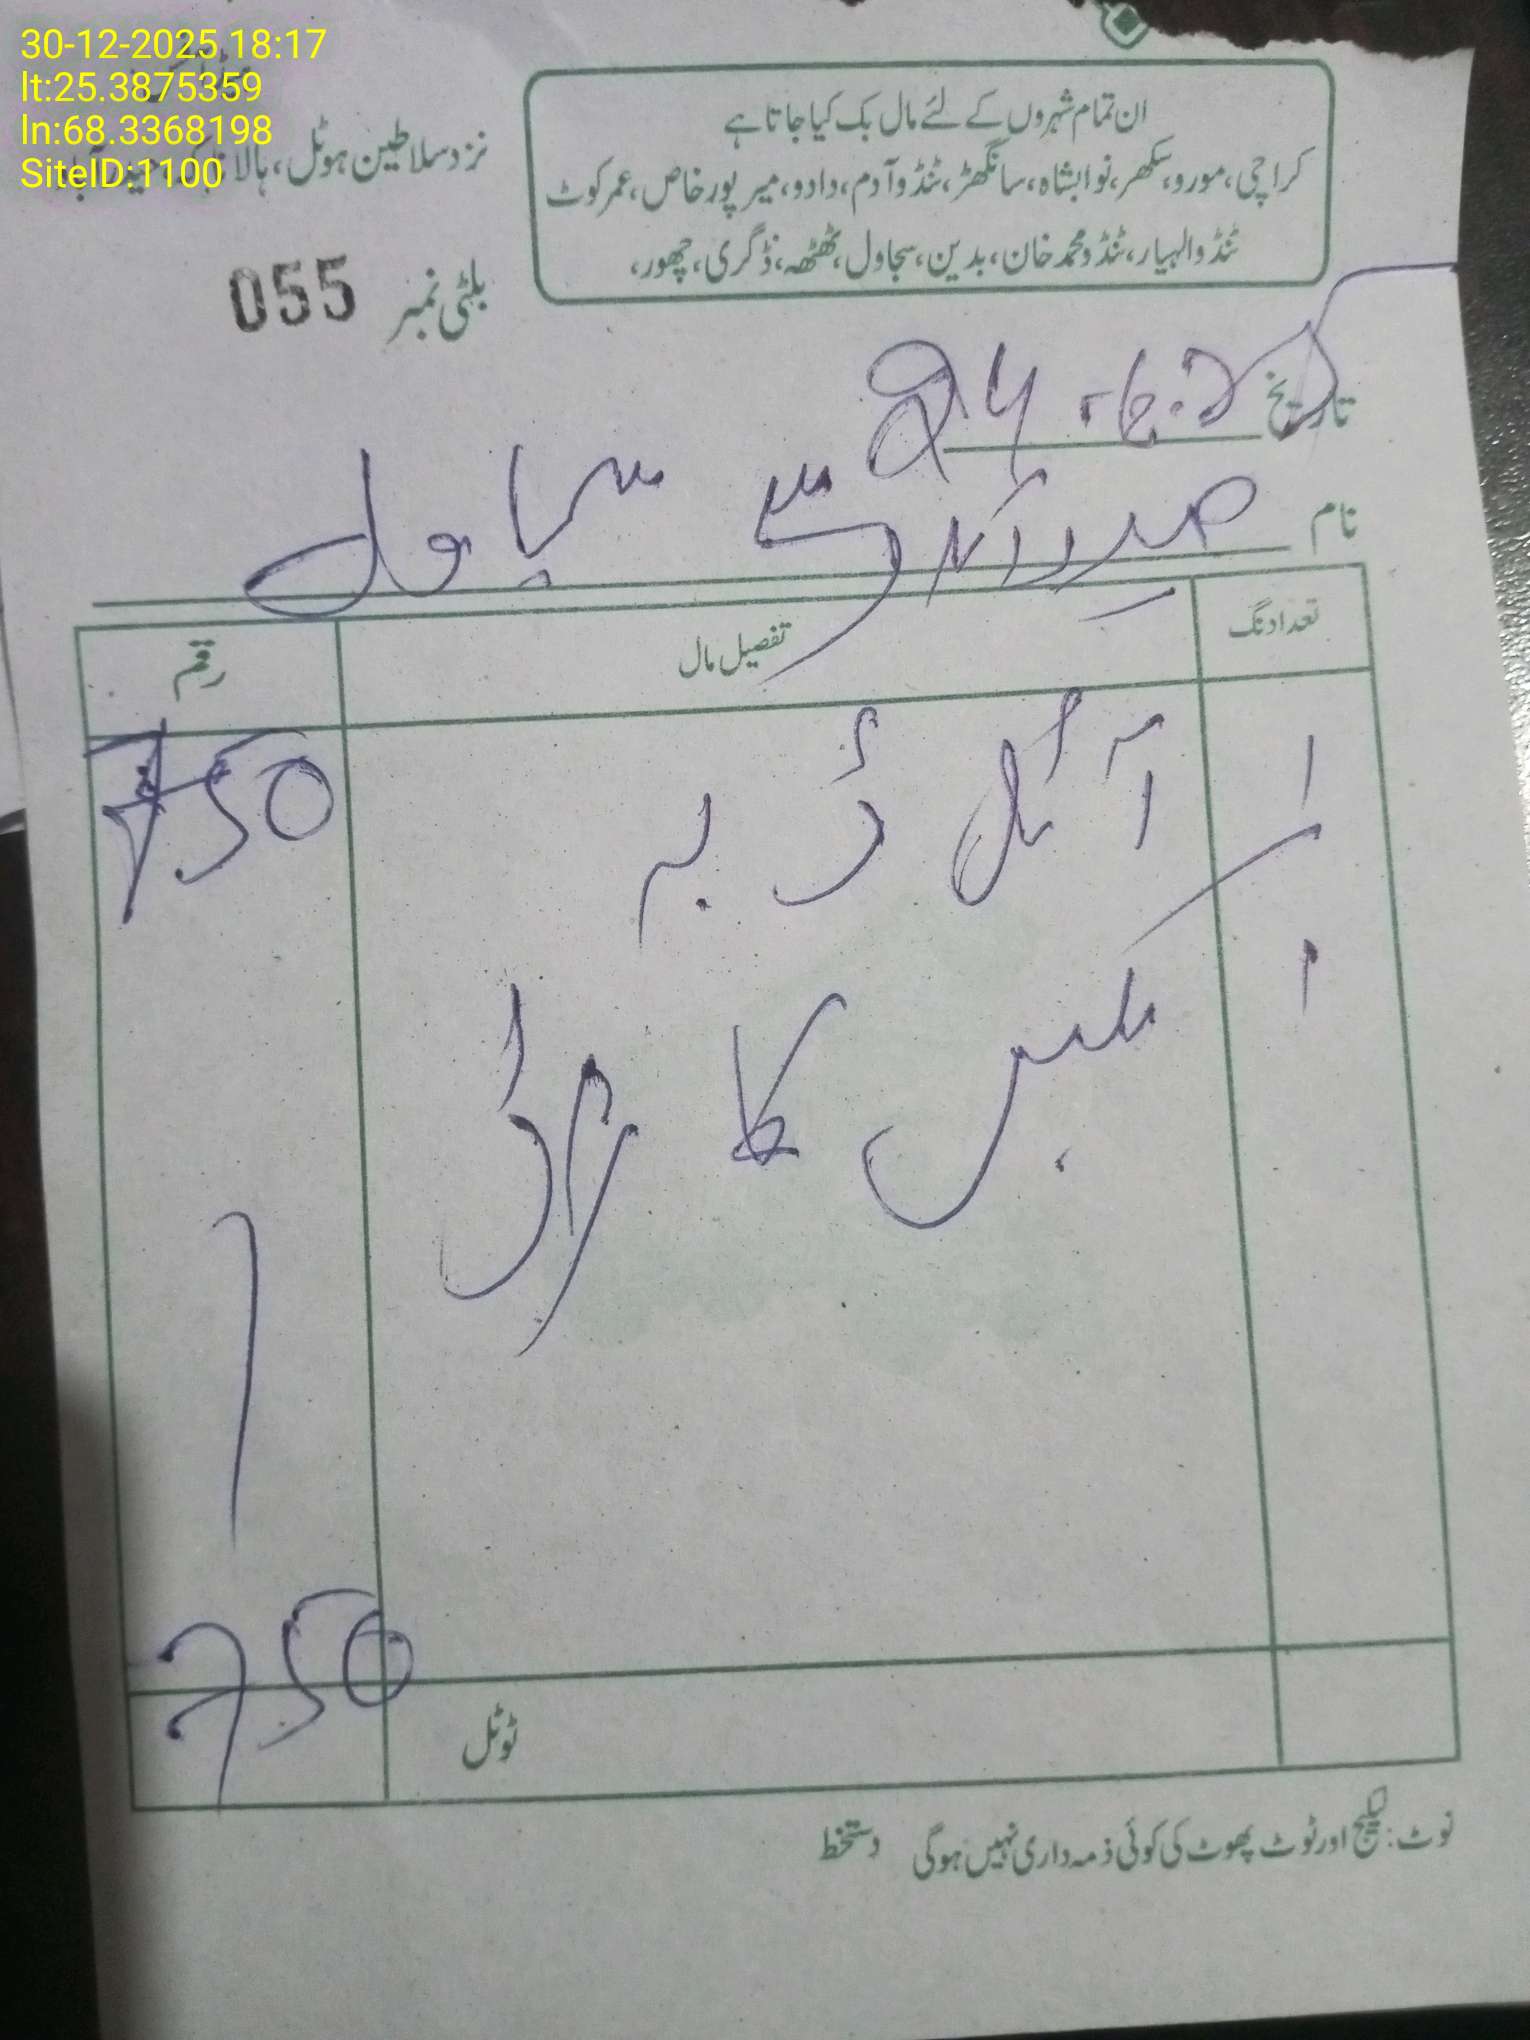 30-12-2025 18:17
lt:25.3875359
ln:68.3368198
SiteID:1100
ان تمام شہروں کے لئے مال بک کیا جاتا ہے
کراچی، مورو، سکھر، نوابشاہ، سانگھڑ، ٹنڈوآدم، دادو، میرپورخاص، عمرکوٹ
ٹنڈوالہیار، ٹنڈومحمدخان، بدین، سجاول، ٹھٹھہ، ڈگری، چھور،
نزد سلاطین ہوٹل، ہالا ناکہ
بلٹی نمبر 055
تاریخ
نام حیدرآباد سے سجاول
تعداد نگ تفصیل مال رقم
1 آئل ڈبہ 750
1 کا
ٹوٹل 750
نوٹ: لیکیج اور ٹوٹ پھوٹ کی کوئی ذمہ داری نہیں ہوگی دستخط